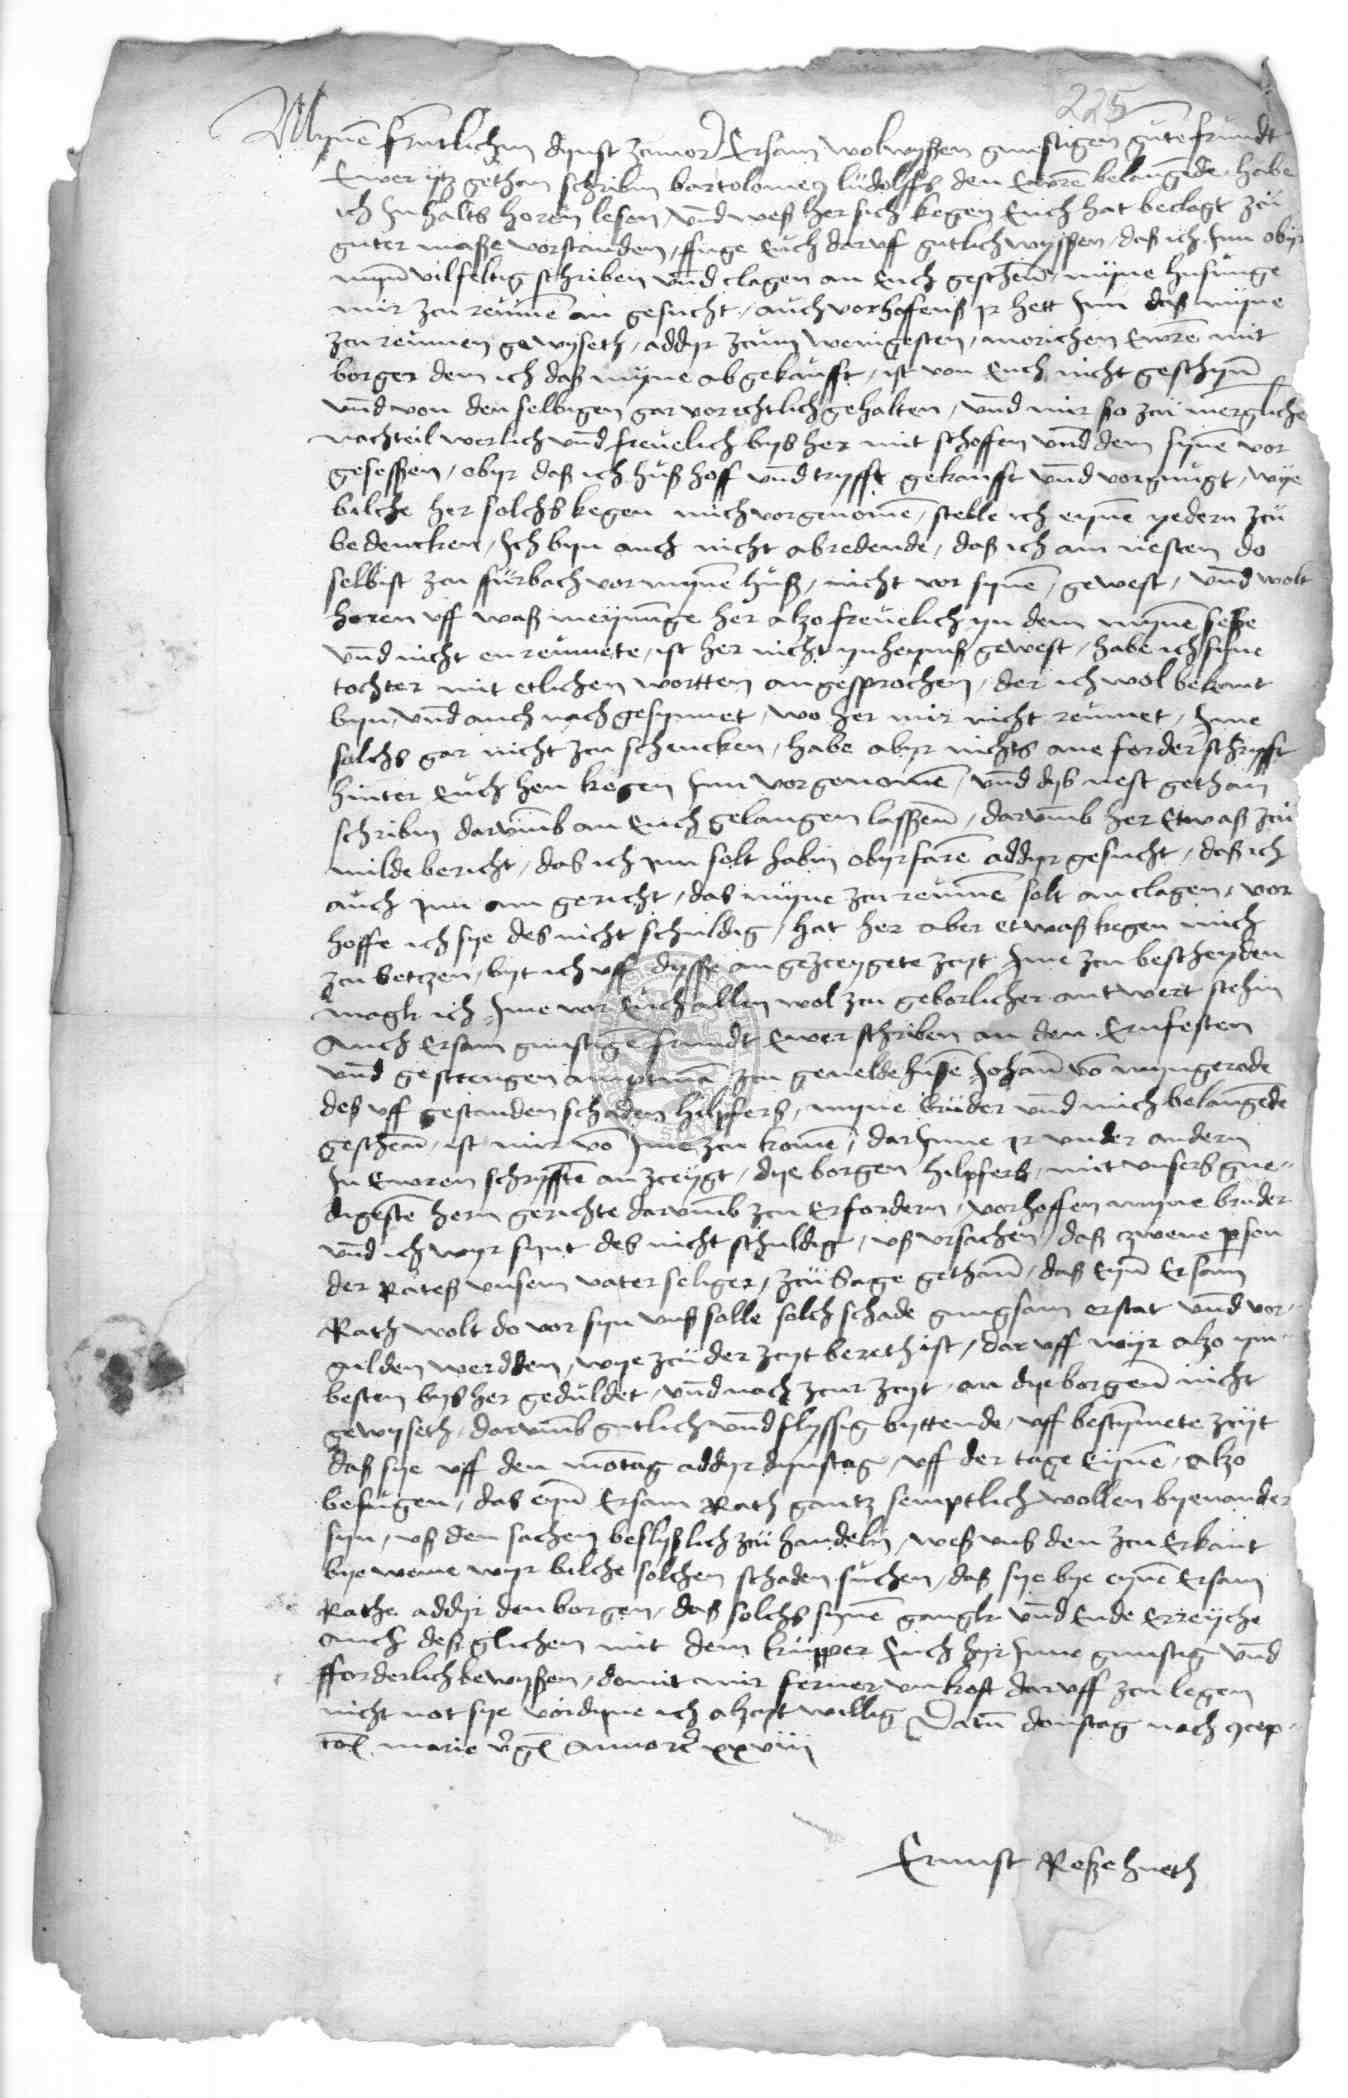 225
Mynen fruntlichen dynst zcuuor Ersam wolwyßen gunstigen guten frundt
Ewer itz gethan schribin bartolomeg lüdolffs den Ewren belangede habe
ich Inhalts horen lesen, vnd weß her sich kegen Euch hat beclagt zcu
guter maße vorstanden, ffuge Euch daruff gutlich wyssen, daß ich Inn obir
mynn vilfeltig schriben vnd clagen an Euch geschenn, myne husunge
mir zcu reumen an gesucht, auch vorhoffens ir hett Inn daß myne
zcu reumen gewyseth, addyr zcum wenigesten, Ewren mit
borger dem ich daß myne abgekaufft, ist von Euch nicht geschyn
vnd von den selbigen gar vorechtlich gehalten, vnd mir so zcu merglichen
nachteil werlich vnd freuelich byß her mit schoffen vnd dem synen vor
gesessen, obyr daß ich huß hoff vnd tryfft gekaufft vnd vorgnugt, wye
bilche her solchs kegen mich vorgenomen, stelle ich eynen yedern zcu
bedencken, Ich byn auch nicht abredende, daß ich am nesten do
selbist zcu ffurbach vor mynen huß, nicht vor synen, gewest, vnd wolt
horen vff waß meynunge her alzo freuelich yn dem mynen seße
vnd nicht en reumete, ist her nicht ynheyms gewest, habe ich syne
tochter mit etlichen wortten angesprochen, der ich wol bekant
byn, vnd auch nach gesynnet, wo her mir nicht reumet, Ime
solchs gar nicht zcu schencken, habe abyr nichts ane forder schryfft
hinter Euch hen kegen Inn vorgenomen, vnd dyß nest gethan
schribin darumb an Euch gelangen lassenn, darumb her Etwaß zcu
milde bericht, das ich Inn solt habin obyrfaren addyr gesucht, daß ich
auch Inn am gericht, das myne zcu reumen solt anclagen, vor
hoffe ich sye des nicht schuldig, hat her aber etwaß kegen mich
zcu setczen, byt ich vff dysse angezceygete zcyt Ime zcu bescheyden
magk ich Ime vor Euch allen wol zcu geborlicher antwert stehin
Auch Ersam gunstigen frundt Ewer schriben an den Ernfesten
vnd gestrengen amptman zcu geueldehusen Johan von myngerode
deß vff gestanden schaden hilpfers, myne bruder vnd mich belangede
geschenn, ist mir von Ime zcu komen, dar Inne ir vnder andern
In Ewren schryfften anzceygt, dye borgen hilpfers, mit vnsers gne-
digesten hern gerichte darumb zcu Erfordern, vorhoffen myne bruder
vnd ich wyr synt des nicht schuldig, vß vrsachen, daß zwene person
der Rates vnsem vater seliger, zcu sage gethann, daß Eyn Ersam
Rath wolt do vor syn vnß solle solch schade gnugsam erstat vnd vor-
gulden werdden, wye zcu der zcyt bereth ist, dar vff wyr alzo ym
besten byß her geduldet, vnd noch zcur zcyt, an dye borgenn nicht
gewyseth, darumb gutlich vnd flyssig byttende, vff bestymete zcyt
daß sye vff den montag addyr dynstag, vff der tage eynen, alzo
befugen, das eyn Ersam Rath gantz semptlich wollen byenander
syn, vß den sachen beslyßlich zcu handeln, weß vnß den zcu Erkant
bye weme wyr bilche solchen schaden suchen, daß sye bye eynen Ersam
Rathe addyr den borgen, daß solchs synen gangk vnd Ende Erreyche
auch des glichen mit dem kupper Euch hyr Inne gunstig vnd
fforderlich bewyßen, domit mir ferner vnkost daruff zcu legen
nicht not sye vordyne ich alzcyt willig Datum donstag nach ꝯcep-
tōis marie v̄gis Annorum xxviii
Ernnst